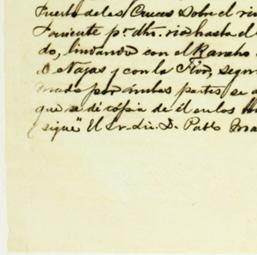 Puerto de las Cruces sobre el ri
Poniente p.r dho. rio hasta el
do, lindando con el Rancho
D. Najas y con la Flor, segun
mado por ambas partes se a
que se di cópia de él en los
sigue" El Sr. Lic. D. Pablo Ma